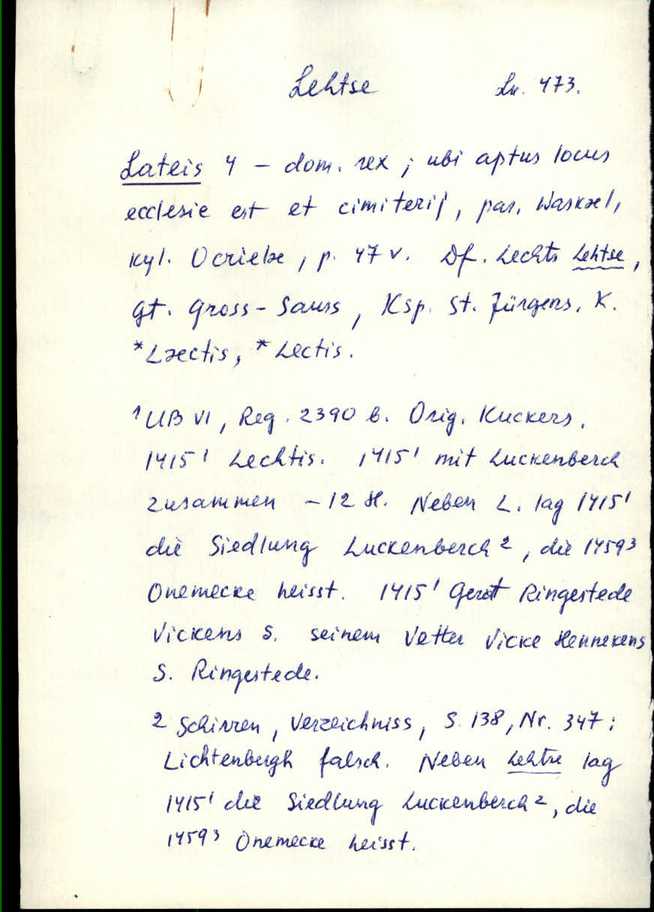 Lehtse Lu. 473.
Lateis 4 – dom. rex ; ubi aptus locus
ecclesie est et cimiterij, par. Waskæl,
kyl. Ocrielæ, p. 47 v. Df. Lechts Lehtse,
gt. Gross-Sauss, Ksp. St. Jürgens. K.
*Læctis, *Lectis.
¹ UB VI, Reg. 2390 b. Orig. Kuckers.
1415¹ Lechtis. 1415¹ mit Luckenberch
zusammen – 12 H. Neben L. lag 1415¹
die Siedlung Luckenberch², die 1459³
Onemecke heisst. 1415¹ Gerdt Ringestede
Vickens S. seinem Vetter Vicke Hennekens
S. Ringestede.
2 Schirren, Verzeichniss, S. 138, Nr. 347;
Lichtenbergh falsch. Neben Lehtse lag
1415¹ die Siedlung Luckenberch², die
1459³ Onemecke heisst.